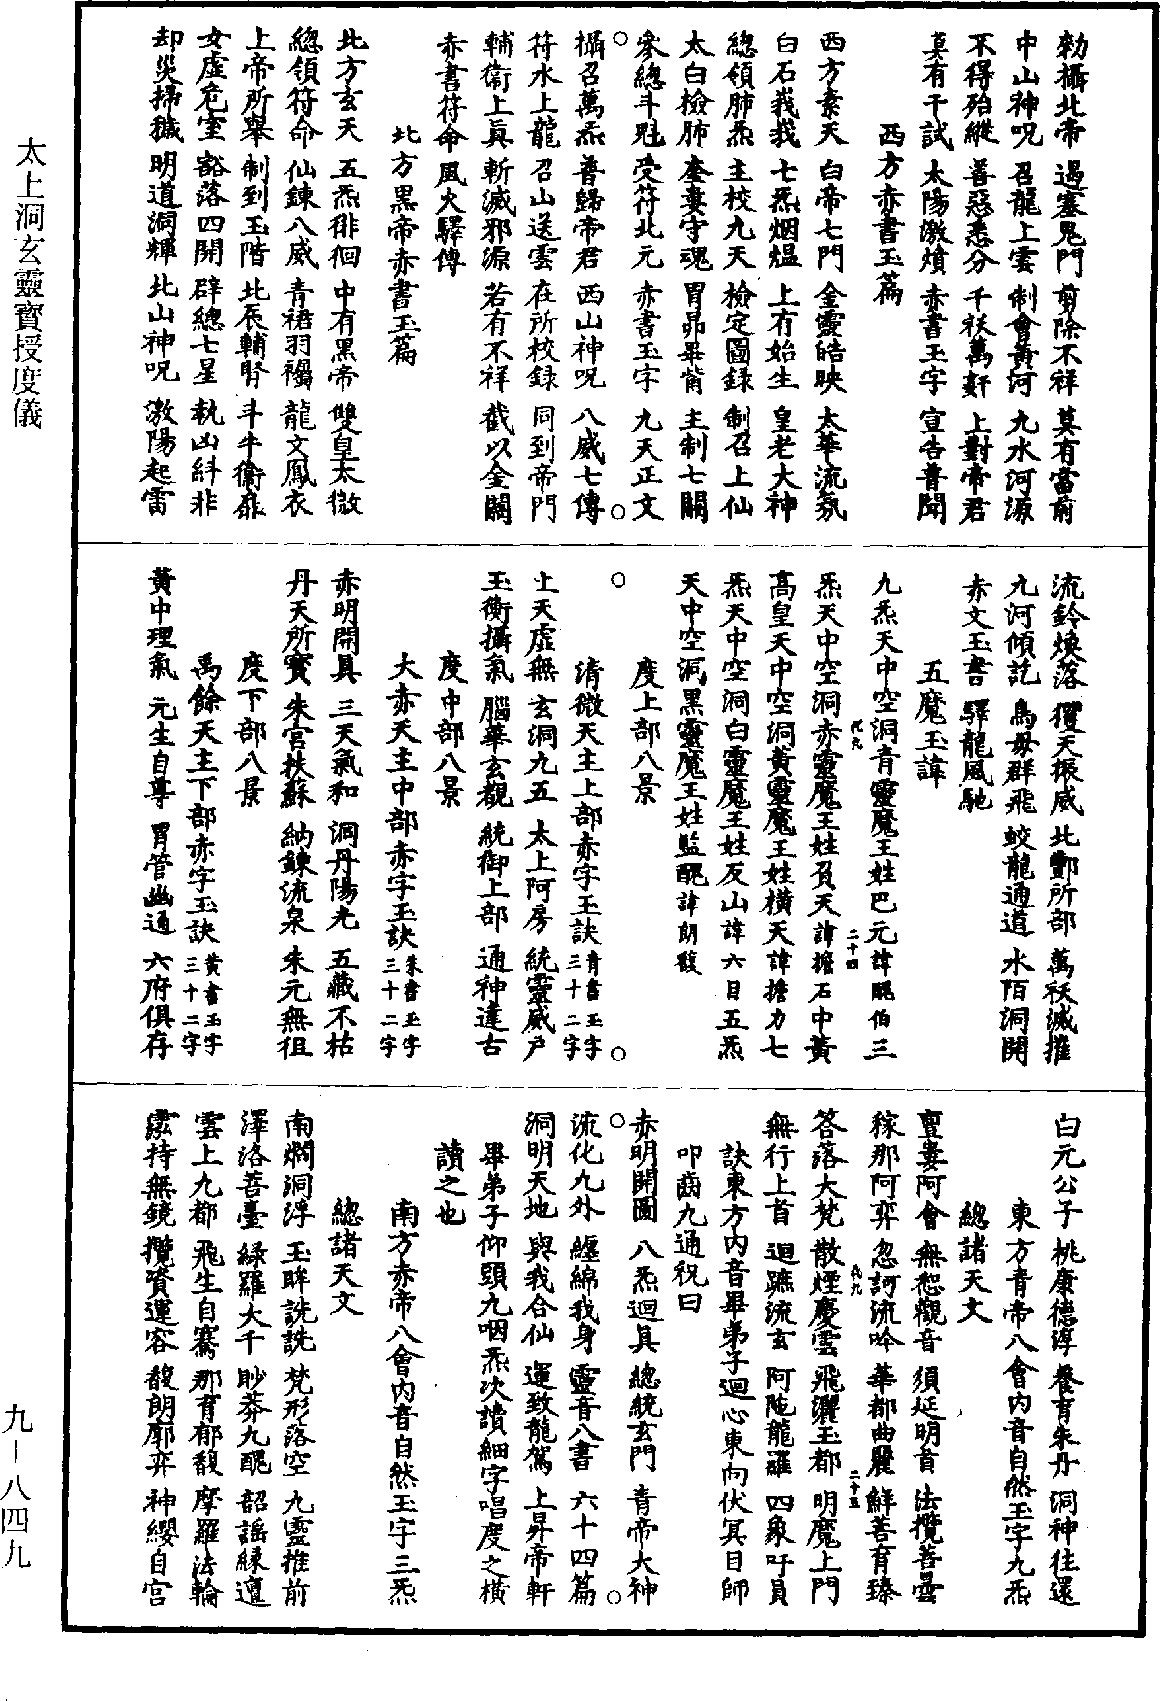 勑攝北帝 遏塞鬼門 剪除不祥 莫有當前
中山神呪 召龍上雲 制會黃河 九水河源
不得殆縱 善惡悉分 千袄萬姧 上對帝君
莫有干試 太陽激熿 赤書玉字 宣告普聞
西方赤書玉篇
西方素天 白帝七門 金靈皓映 太華流氛
白石峩峩 七炁烟煴 上有始生 皇老大神
總領肺炁 主校九天 檢定圖錄 制召上仙
太白檢肺 奎婁守魂 胃昴畢觜 主制七關
參總斗魁 受符北元 赤書玉字 九天正文
攝召萬炁 普歸帝君 西山神呪 八威七傳
符水上龍 召山送雲 在所校録 同到帝門
輔衞上眞 斬滅邪源 若有不祥 截以金關
赤書符命 風火驛傳
北方黑帝赤書玉篇
北方玄天 五炁徘徊 中有黑帝 雙皇太微
總領符命 仙鍊八威 青裙羽襡 龍文鳳衣
上帝所舉 制到玉階 北辰輔腎 斗牛衞扉
女虛危室 豁落四開 辟總七星 執凶糾非
却災掃穢 明道洞輝 北山神呪 激陽起雷
流鈴煥落 玃天振威 北酆所部 萬袄滅摧
九河傾訖 鳥母群飛 蛟龍通道 水陌洞開
赤文玉書 驛龍風馳
五魔玉諱
九炁天中空洞青靈魔王姓巴元諱醜伯三
炁天中空洞赤靈魔王姓負天諱擔石中黃
高皇天中空洞黃靈魔王姓橫天諱擔力七
炁天中空洞白靈魔王姓反山諱六目五炁
天中空洞黑靈魔王姓監醜諱朗馥
度上部八景
清微天主上部赤字玉訣青書玉字三十二字
上天虛無 玄洞九五 太上阿房 統靈威戶
玉衡攝氣 腦華玄覩 統御上部 通神達古
度中部八景
大赤天主中部赤字玉訣朱書玉字三十二字
赤明開具 三天氣和 洞丹陽光 五藏不枯
丹天所寶 朱宮扶蘇 納鍊流泉 朱元無徂
度下部八景
禹餘天主下部赤字玉訣黃書玉字三十二字
黃中理氣 元生自尊 胃管幽通 六府俱存
白元公子 桃康德淳 養育朱丹 洞神往還
東方青帝八會内音自然玉字九炁
總諸天文
亶婁阿會 無惒觀音 須延明首 法攬菩曇
稼那阿弈 忽訶流吟 華都曲麗 鮮菩育臻
答落大梵 散煙慶雲 飛灑玉都 明魔上門
無行上首 迴蹠流玄 阿陁龍羅 四象吁員
訣東方内音畢弟子迴心東向伏冥目師
叩齒九通祝曰
赤明開圖 八炁迴真 總統玄門 青帝大神
流化九外 纏綿我身 靈音八書 六十四篇
洞明天地 與我合仙 運致龍駕 上昇帝軒
畢弟子仰頭九咽炁次讀細字唱度之橫
讀之也
南方赤帝八會内音自然玉字三炁
總諸天文
南爓洞浮 玉眸詵詵 梵形落空 九靈推前
澤洛菩臺 綠羅大千 眇莽九醜 韶謡緣邅
雲上九都 飛生自騫 那育郁馥 摩羅法輪
霐持無鏡 攬資運容 馥朗廓弈 神纓自宮
太上洞玄靈寶授度儀
九－八四九